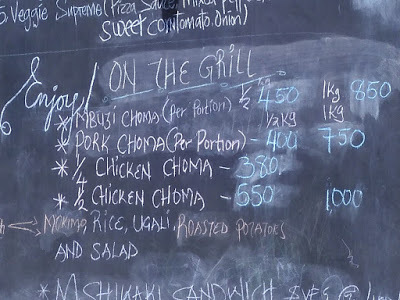 5 Veggie Supreme (Pizza Sauce, Mixed
sweet corn, tomato, Onion)
Enjoy!
ON THE GRILL
* MBUZI CHOMA (Per Portion) ½ kg 450 1kg 850
* PORK CHOMA (Per Portion) - ½kg 400 1kg 750
* ¼ CHICKEN CHOMA - 380
* ½ CHICKEN CHOMA - 650 1,000
MOKIMO RICE, UGALI, ROASTED POTATOES
AND SALAD
* MSHIKAKI SANDWICH